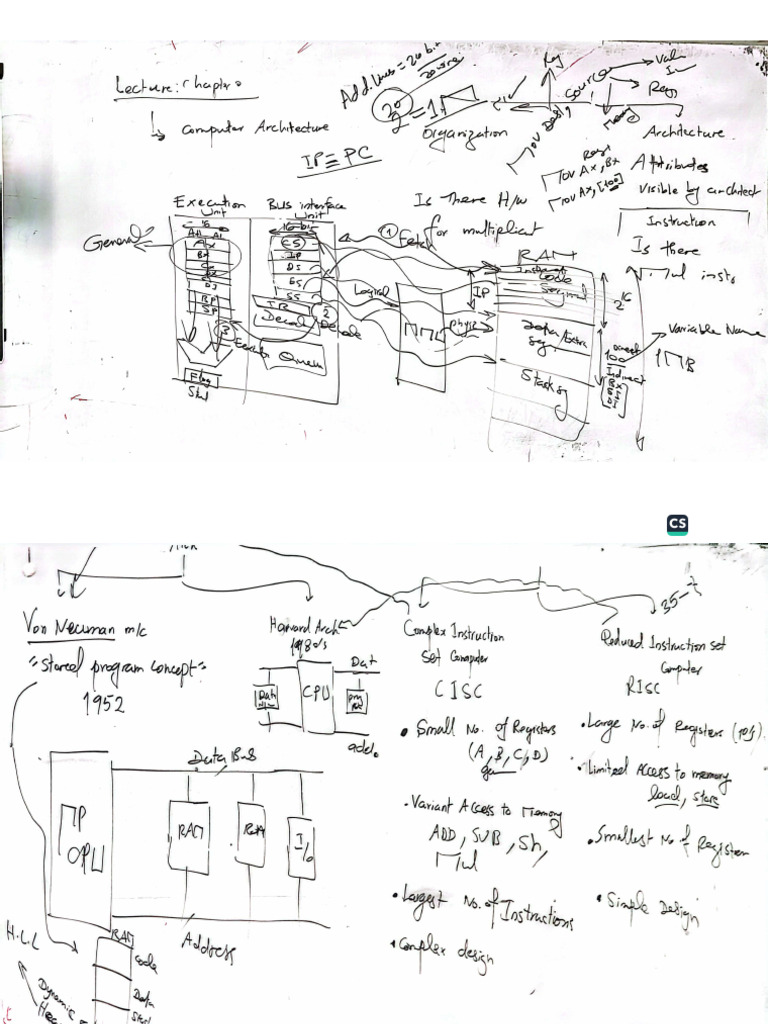 Lecture: Chapter
Computer Architecture
IP ≡ PC
Add. bus = 20 bit
20 wire
2^20 = 1M
Organization
Design
Reg
Source
Value
Reg
Memory
Architecture
Mov AX, BX
Mov AX, [100]
Attributes
visible by architect
Instruction
Is there
Mul inst.
Is There H/w
for multiplicat
Execution
Unit
BUS interface
Unit
General
16
AH AL
AX
BX
CX
DX
BP
SP
Flag
16-bit
CS
IP
DS
ES
SS
IR
Decod
Queue
1 Fetch
2 Decode
3 Execut
Logical
MMU
phys
RAM
IP
Code
Segment
2^16
Data/Extra
seg
Stack sg
Direct
100
Indirect
Variable Name
1MB
CS
Von Neuman m/c
"Stored program concept"
1952
Harvard Arch
1980's
Dat
CPU
add.
Complex Instruction
Set Computer
CISC
35-7
Reduced Instruction set
Computer
RISC
• Small No. of Registers
(A, B, C, D)
• Large No. of Registers
• Limited Access to memory
load, store
• Variant Access to Memory
ADD, SUB, Sh,
Mul
• Smallest No. of Register
• Largest No. of Instructions
• Simple Design
• Complex design
Data Bus
MP
CPU
RAM
ROM
I/o
Address
H.L.L
RAM
code
Data
Dynamic